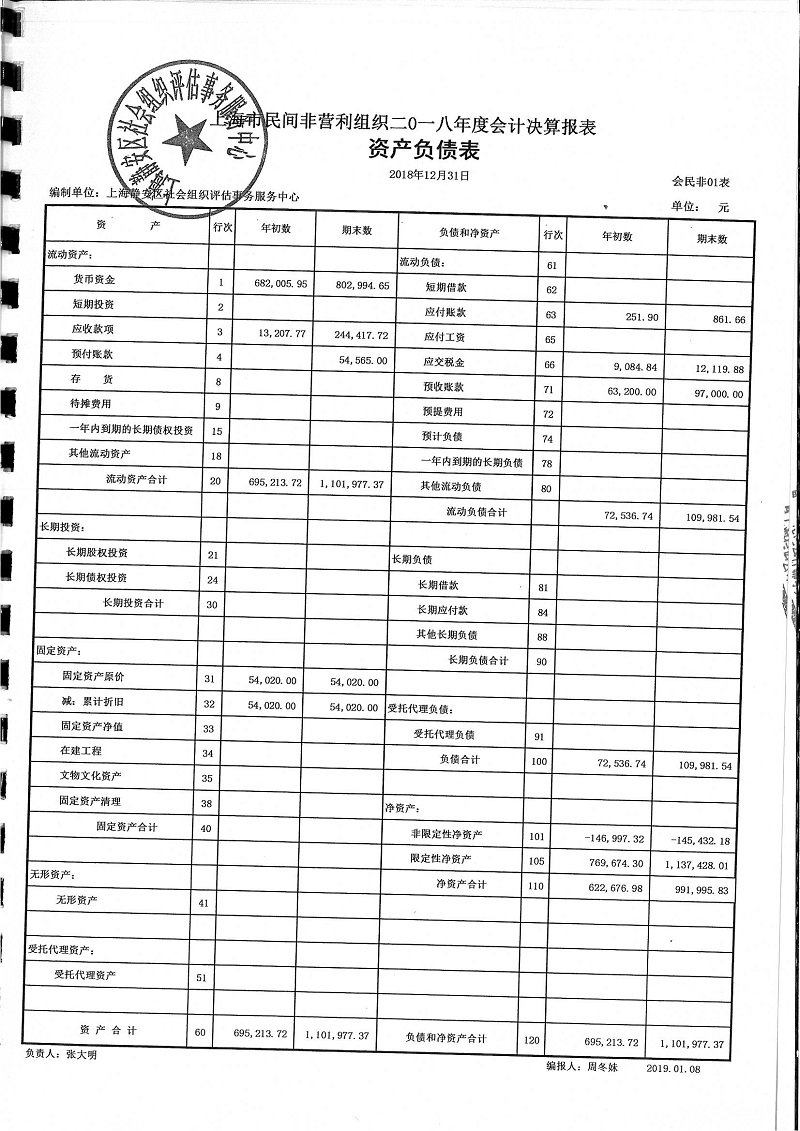 上海市民间非营利组织二0一八年度会计决算报表
资产负债表
2018年12月31日
会民非01表
编制单位：上海静安区社会组织评估事务服务中心
单位： 元
资 产 行次 年初数 期末数 负债和净资产 行次 年初数 期末数
流动资产： 流动负债： 61
货币资金 1 682,005.95 802,994.65 短期借款 62
短期投资 2 应付账款 63 251.90 861.66
应收款项 3 13,207.77 244,417.72 应付工资 65
预付账款 4 54,565.00 应交税金 66 9,084.84 12,119.88
存 货 8 预收账款 71 63,200.00 97,000.00
待摊费用 9 预提费用 72
一年内到期的长期债权投资 15 预计负债 74
其他流动资产 18 一年内到期的长期负债 78
流动资产合计 20 695,213.72 1,101,977.37 其他流动负债 80
流动负债合计 72,536.74 109,981.54
长期投资：
长期股权投资 21 长期负债
长期债权投资 24 长期借款 81
长期投资合计 30 长期应付款 84
其他长期负债 88
固定资产： 长期负债合计 90
固定资产原价 31 54,020.00 54,020.00
减：累计折旧 32 54,020.00 54,020.00 受托代理负债：
固定资产净值 33 受托代理负债 91
在建工程 34 负债合计 100 72,536.74 109,981.54
文物文化资产 35
固定资产清理 38 净资产：
固定资产合计 40 非限定性净资产 101 -146,997.32 -145,432.18
限定性净资产 105 769,674.30 1,137,428.01
无形资产： 净资产合计 110 622,676.98 991,995.83
无形资产 41
受托代理资产：
受托代理资产 51
资 产 合 计 60 695,213.72 1,101,977.37 负债和净资产合计 120 695,213.72 1,101,977.37
负责人：张大明
编报人：周冬妹 2019.01.08